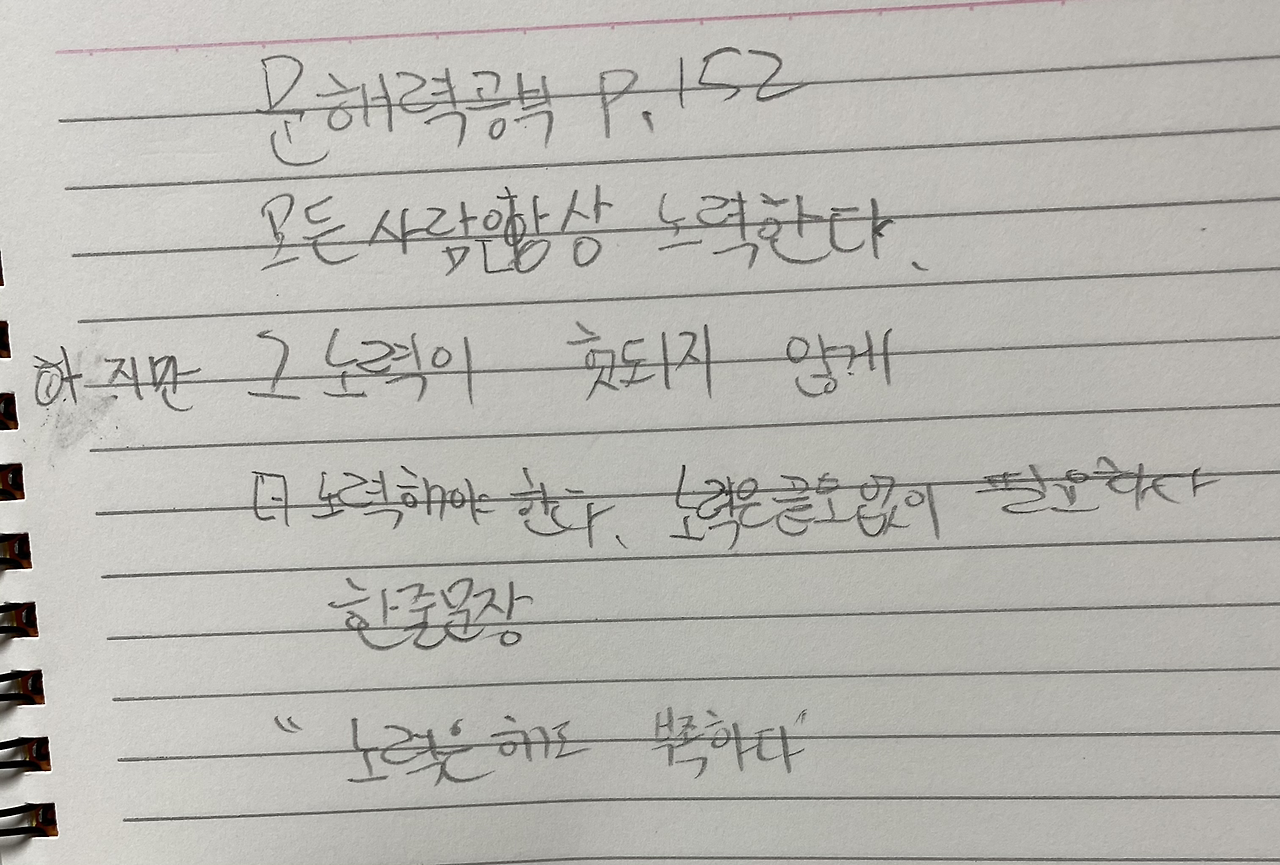 문해력공부 P.152
모든 사람은 항상 노력한다.
하지만 그 노력이 헛되지 않게
더 노력해야 한다. 노력은 끝도 없이 필요하다
한줄문장
"노력은 해도 부족하다"